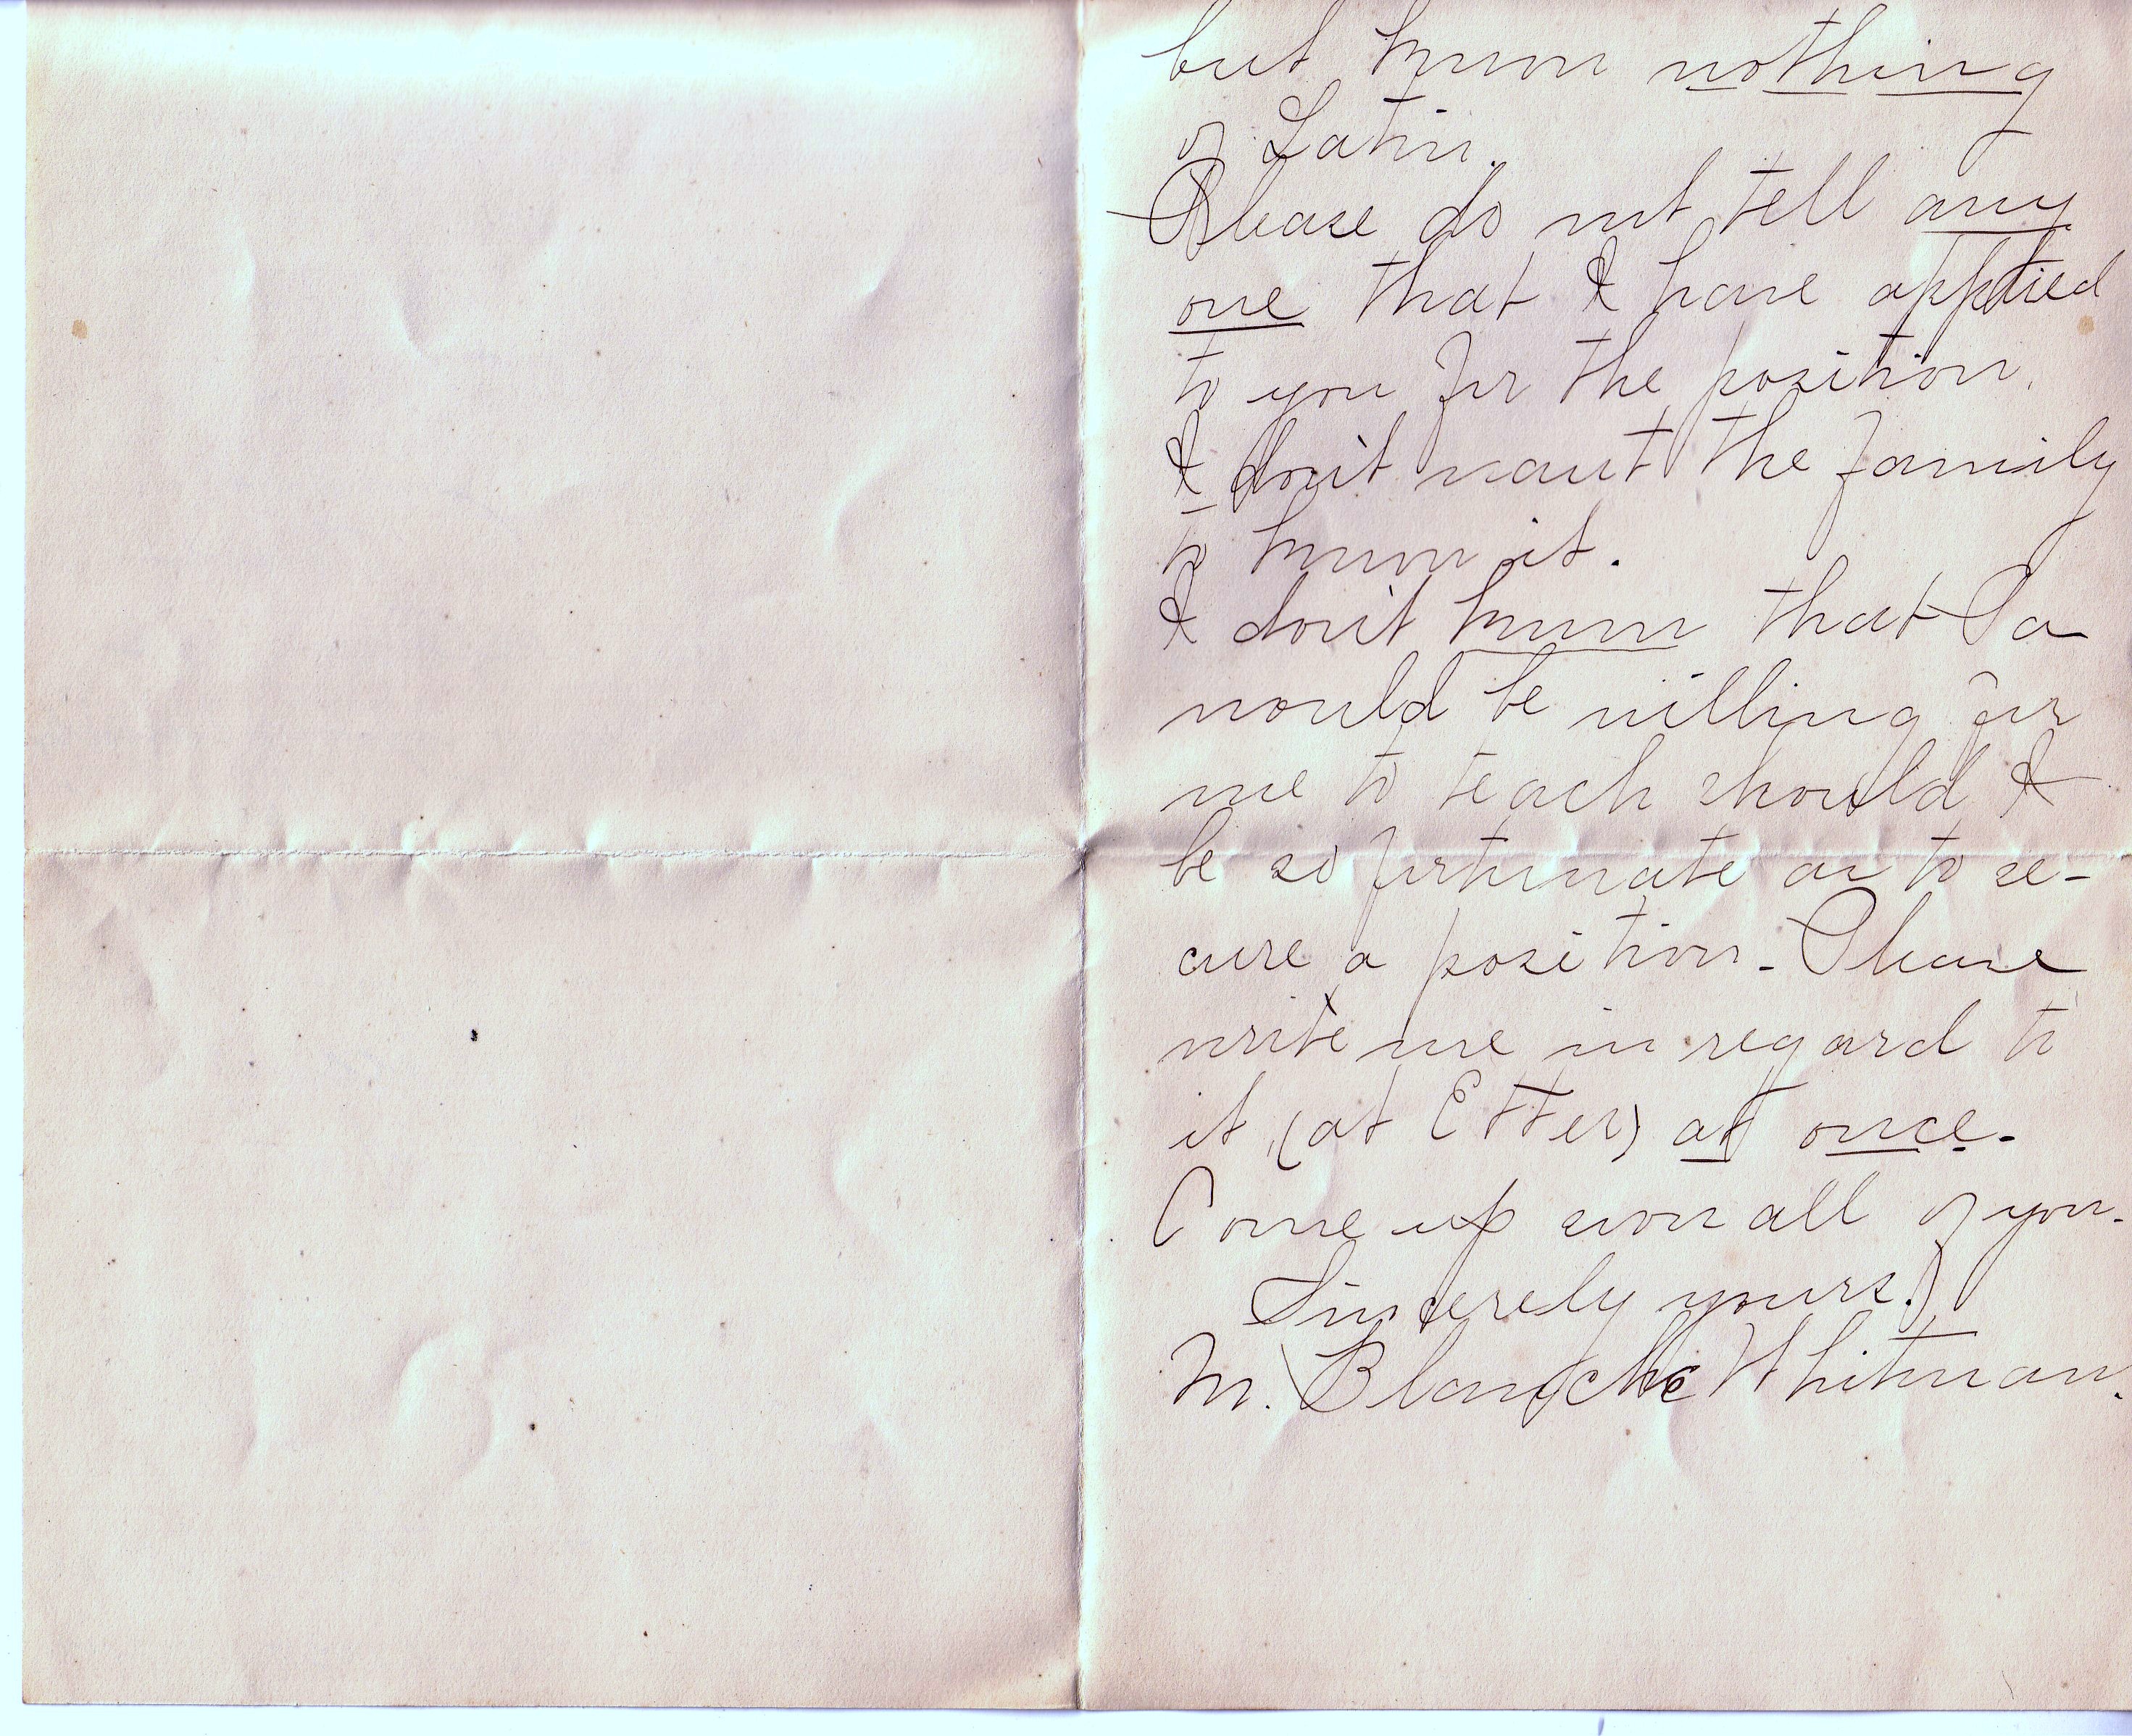 but know nothing
of Latin.
Please do not tell any
one that I have applied
to you for the position.
I don't want the family
to know it.
I don't know that Pa
would be willing for
me to teach should I
be so fortunate as to se-
cure a position. Please
write me in regard to
it (at Etter) at once.
Come up soon all of you.
Sincerely yours.
M. Blanche Whitman.